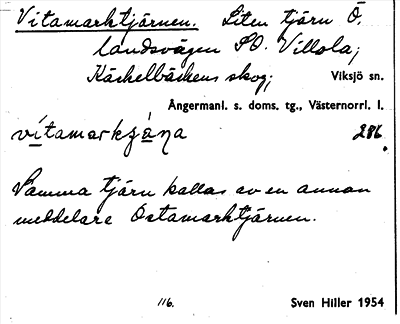 Vitamarktjärnen. Liten tjärn Ö.
landsvägen SO. Villola;
Käckelbäckens skog; Viksjö sn.
Ångermanl. s. doms. tg., Västernorrl. l.
286.
Samma tjärn kallas av en annan
meddelare Östamarktjärnen.
116. Sven Hiller 1954